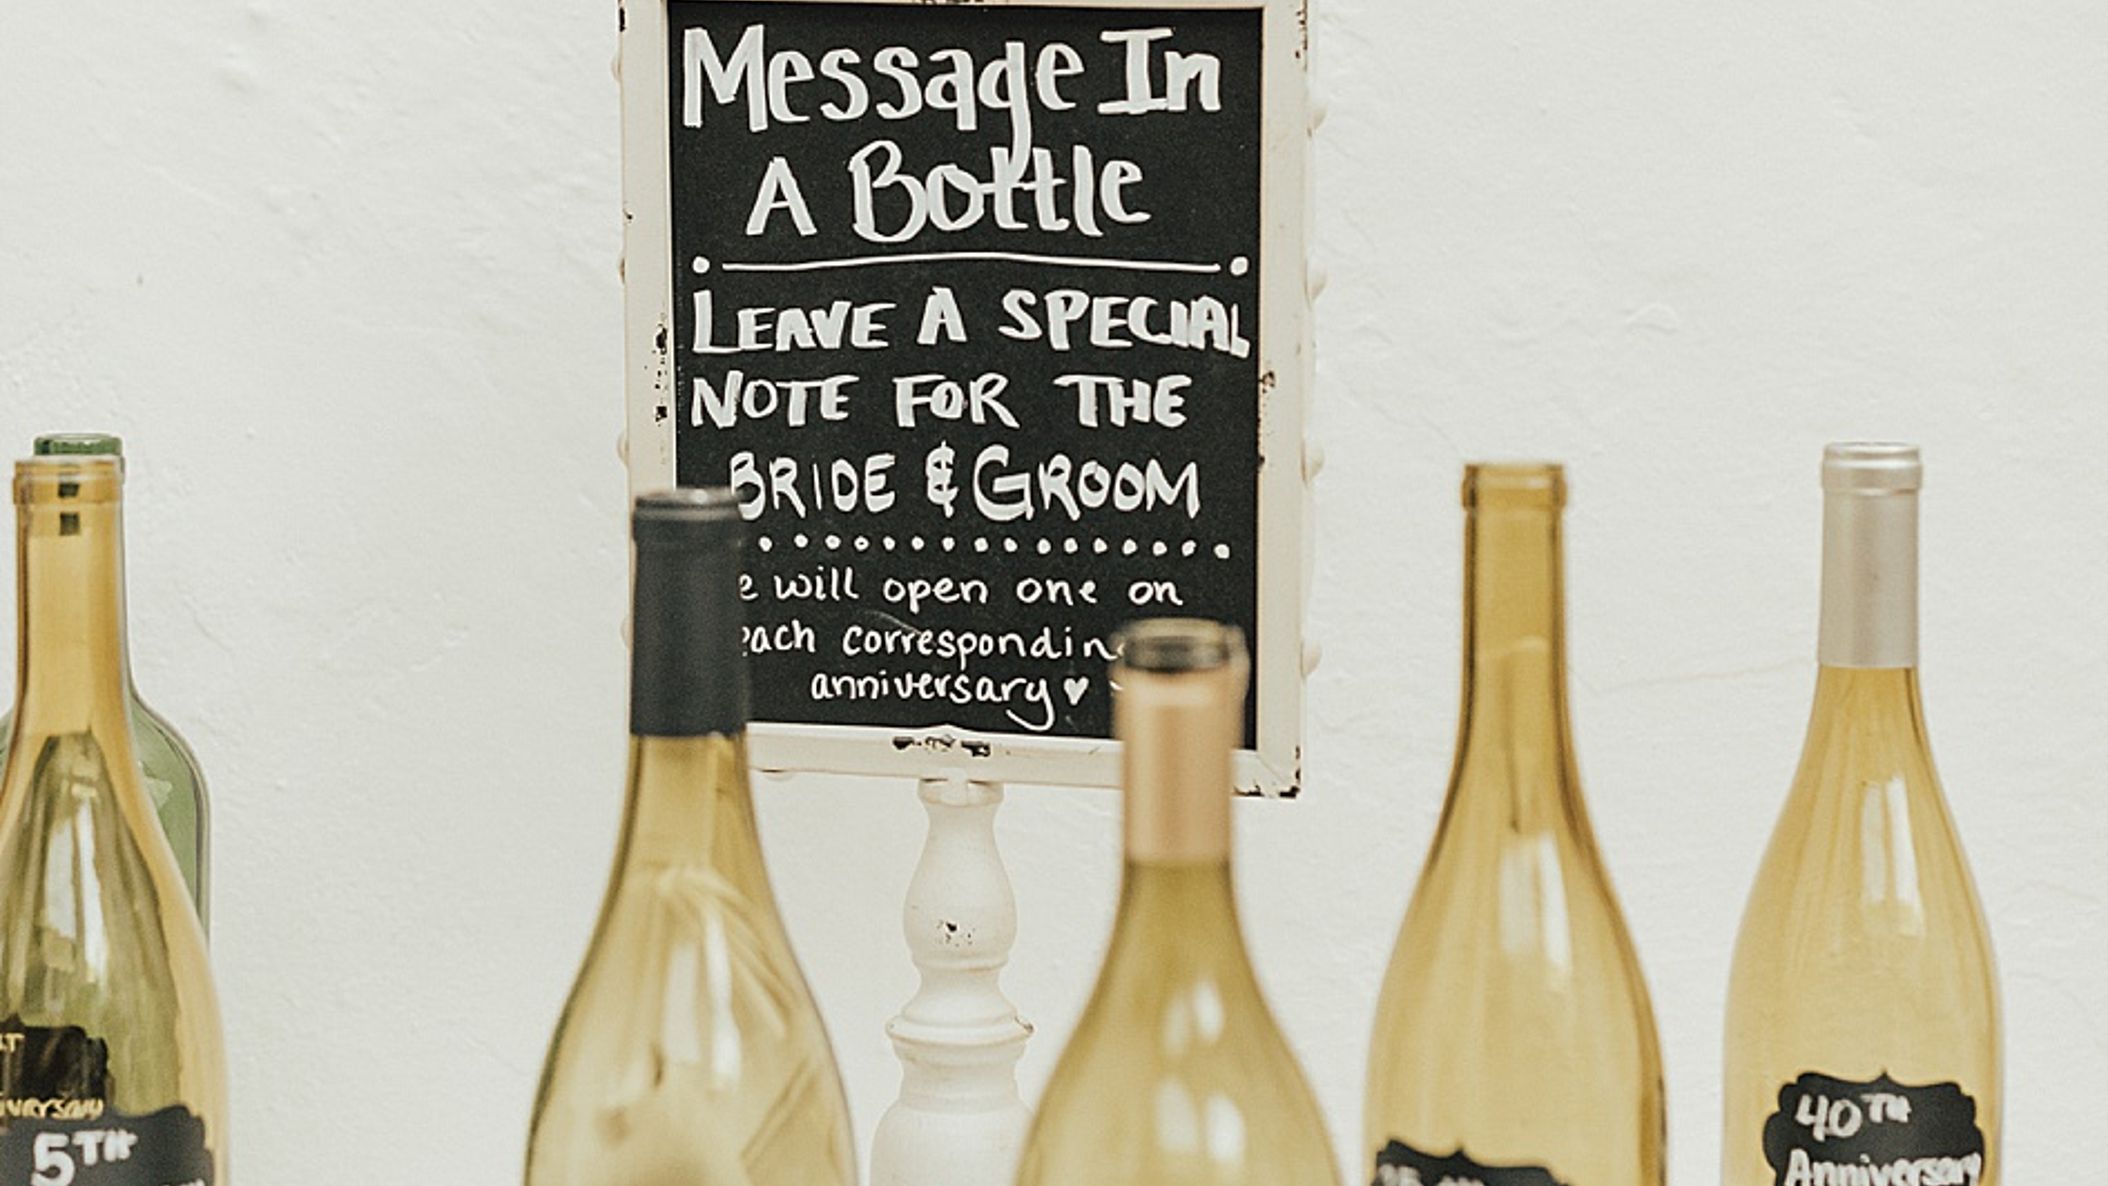 Message In
A Bottle
LEAVE A SPECIAL
NOTE FOR THE
BRIDE & GROOM
will open one on
each
anniversary ♥
5TH
40TH
Anniversary